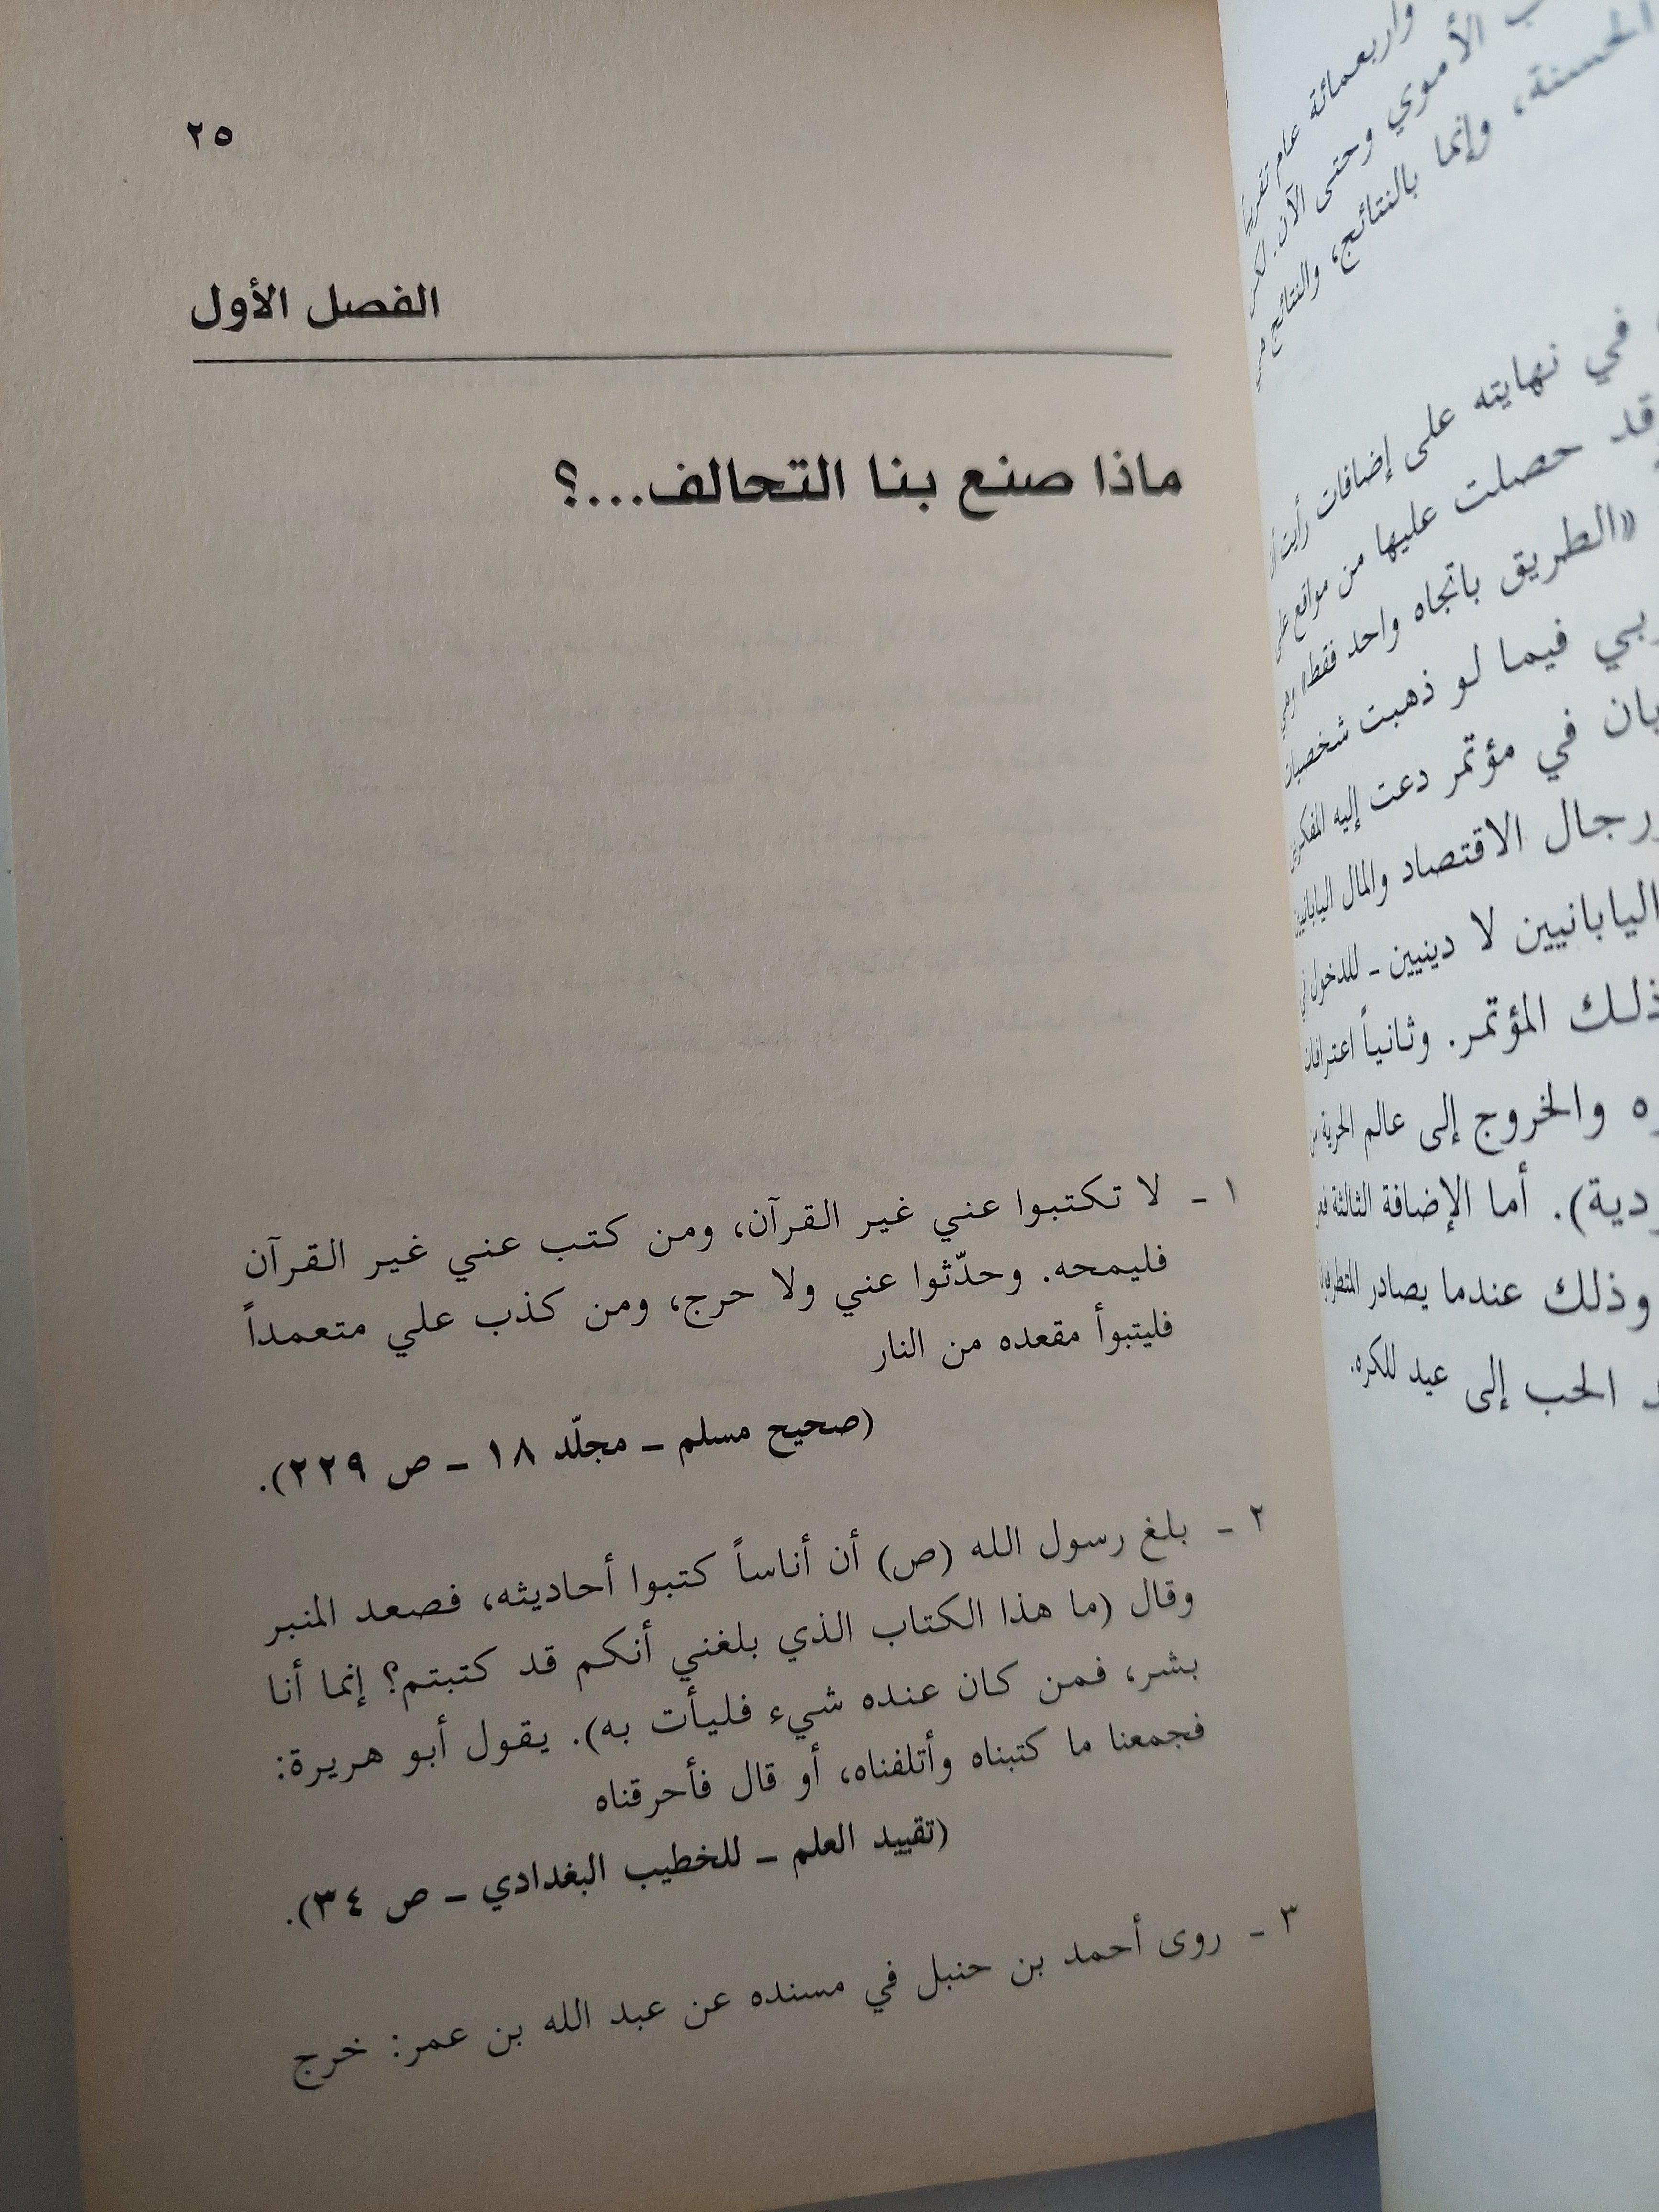 ٢٥
الفصل الأول
ماذا صنع بنا التحالف...؟
١ - لا تكتبوا عني غير القرآن، ومن كتب عني غير القرآن
فليمحه. وحدّثوا عني ولا حرج، ومن كذب علي متعمداً
فليتبوأ مقعده من النار
(صحيح مسلم - مجلّد ١٨ - ص ٢٢٩).
٢ - بلغ رسول الله (ص) أن أناساً كتبوا أحاديثه، فصعد المنبر
وقال (ما هذا الكتاب الذي بلغني أنكم قد كتبتم؟ إنما أنا
بشر، فمن كان عنده شيء فليأت به). يقول أبو هريرة:
فجمعنا ما كتبناه وأتلفناه، أو قال فأحرقناه
(تقييد العلم - للخطيب البغدادي - ص ٣٤).
٣ - روى أحمد بن حنبل في مسنده عن عبد الله بن عمر: خرج
وأربعمائة عام تقريباً
الأموي وحتى الآن.
الحسنة، وإنما بالنتائج، والنتائج
في نهايته على إضافات رأيت
حصلت عليها من مواقع
«الطريق باتجاه واحد فقط»
فيما لو ذهبت شخصيات
في مؤتمر دعت إليه
رجال الاقتصاد والمال اليابانيين
اليابانيين لا دينيين - للدخول
ذلك المؤتمر. وثانياً اعترافات
والخروج إلى عالم الحرية من
أما الإضافة الثالثة
وذلك عندما يصادر المتطرفون
الحب إلى عيد للكره.